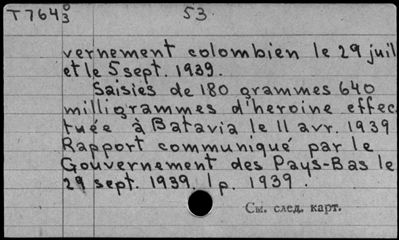 T7643⁰ 53
vernement colombien le 29 juil
et le 5 sept. 1939.
Saisies de 180 grammes 640
milligrammes d'heroine effec
tuée à Batavia le 11 avr. 1939
Rapport communiqué par le
Gouvernement des Pays-Bas le
29 sept. 1939. 1p. 1939.
См. след. карт.